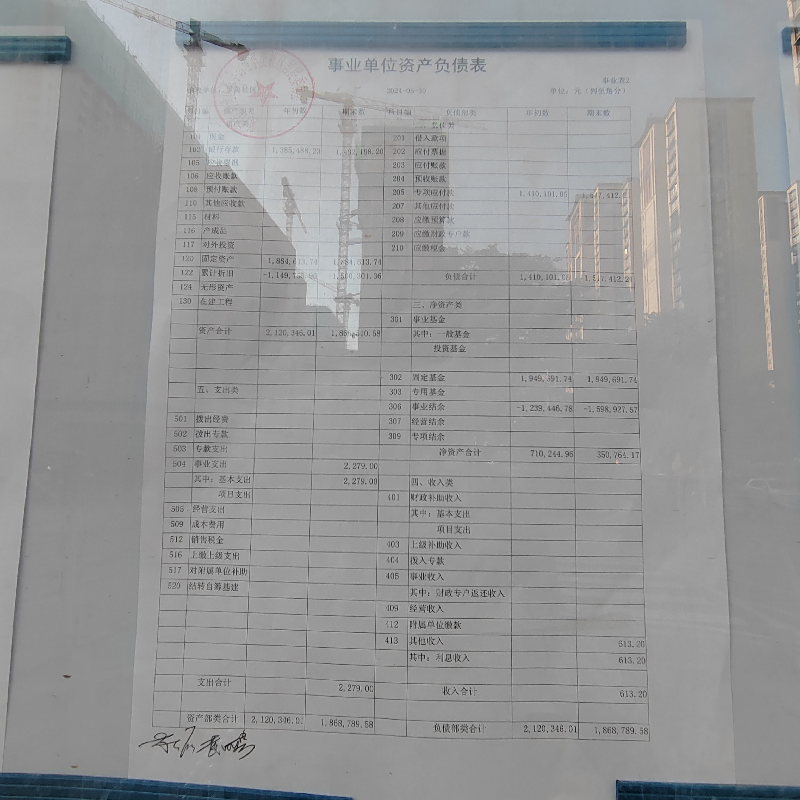 事业单位资产负债表
事业表2
2024-09-30 单位：元（列至角分）
科目编 资产部类 年初数 期末数 科目编 负债部类 年初数 期末数
101 现金 201 借入款项
102 银行存款 202 应付票据
105 应收票据 203 应付账款
106 应收账款 204 预收账款
108 预付账款 205 专项应付款
110 其他应收款 207 其他应付款
115 材料 208 应缴预算款
116 产成品 209 应缴财政专户款
117 对外投资 210 应缴税金
120 固定资产
122 累计折旧 负债合计
124 无形资产
130 在建工程 三、净资产类
301 事业基金
资产合计 2,120,346.01 其中：一般基金
投资基金
302 固定基金 1,949,691.74 1,949,691.74
五、支出类 303 专用基金
306 事业结余 -1,239,446.78 -1,598,927.57
501 拨出经费 307 经营结余
502 拨出专款 309 专项结余
503 专款支出 净资产合计 710,244.96 350,764.17
504 事业支出 2,279.00
其中：基本支出 2,279.00 四、收入类
项目支出 401 财政补助收入
505 经营支出 其中：基本支出
509 成本费用 项目支出
512 销售税金 403 上级补助收入
516 上缴上级支出 404 拨入专款
517 对附属单位补助 405 事业收入
520 结转自筹基建 其中：财政专户返还收入
409 经营收入
412 附属单位缴款
413 其他收入 613.20
其中：利息收入 613.20
支出合计 2,279.00 收入合计 613.20
资产部类合计 2,120,346.01 1,868,789.58 负债部类合计 2,120,346.01 1,868,789.58